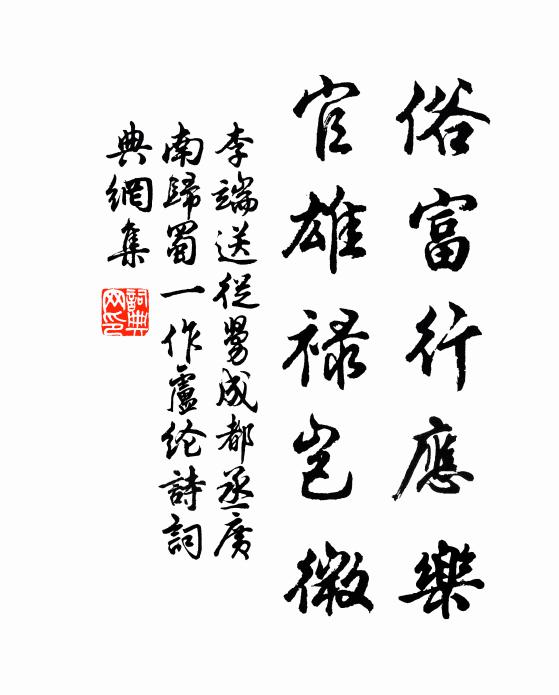 俗富行應樂
官雄禄豈微
李端送從舅成都丞廣
南歸蜀一作盧纶詩詞
典網集
詞典
网印